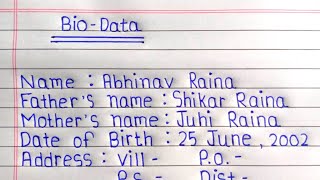 Bio-Data
Name : Abhinav Raina
Father's name : Shikar Raina
Mother's name : Juhi Raina
Date of Birth : 25 June, 2002
Address : vill - P.O. -
P.S. - Dist -